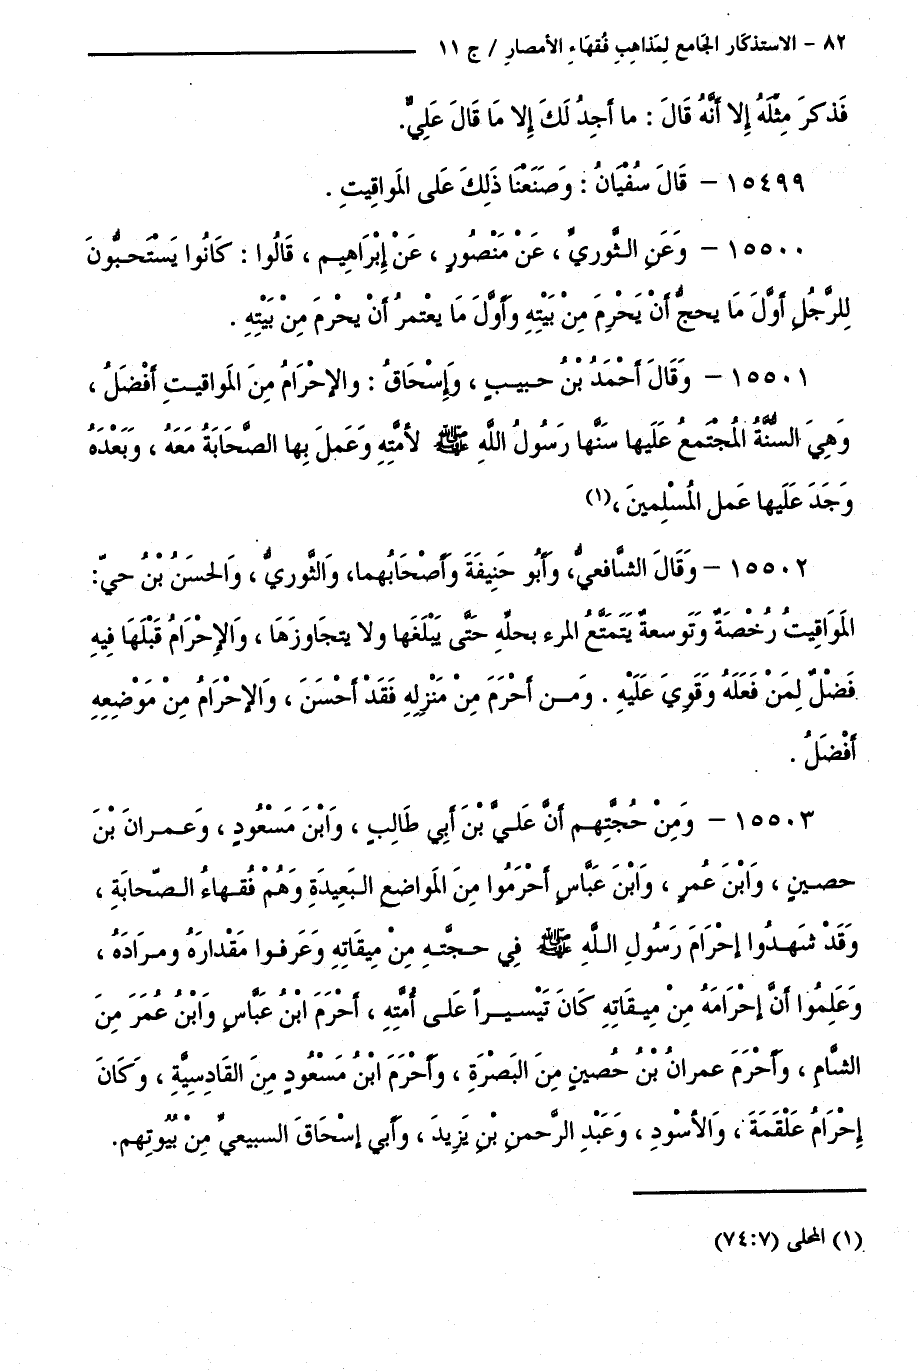 ٨٢ - الاستذكار الجَامع لِمَذاهبِ فُقهَاءِ الأمصارِ / ج ١١
فَذكرَ مِثْلَهُ إِلا أنَّهُ قَالَ : ما أجِدُ لَكَ إِلا مَا قَالَ عَلِيٌّ.
١٥٤٩٩ - قَالَ سُفْيَانُ : وَصَنَعْنَا ذَلِكَ عَلى المَواقِيتِ .
١٥٥٠٠ - وَعَنِ الثَّوريِّ ، عَنْ مَنْصُورٍ ، عَنْ إِبْرَاهِيم ، قَالُوا : كَانُوا يَسْتَحبُّونَ
لِلرَّجُلِ أوَّلَ مَا يحجُّ أنْ يَحْرِمَ مِنْ بَيْتِهِ وَأوَّلَ مَا يعْتمرُ أنْ يحْرمَ مِنْ بَيْتِهِ .
١٥٥٠١ - وَقَالَ أحْمَدُ بْنُ حبيبٍ ، وَإِسْحَاقُ : والإحْرَامُ مِنَ المَواقيتِ أفْضَلُ ،
وَهِيَ السُّنَّةُ المُجْتَمعُ عَلَيها سَنَّها رَسُولُ اللَّهِ ﷺ لأمَّتِهِ وَعَملَ بِها الصَّحَابَةُ مَعَهُ ، وَبَعْدَهُ
وَجَدَ عَلَيها عَمل المُسْلِمينَ ،(١)
١٥٥٠٢ - وَقَالَ الشَّافعيُّ، وَأبُو حَنِيفَةَ وَأصْحَابُهما، وَالثَّوريُّ ، وَالحسَنُ بْنُ حيّ:
المَوَاقِيتُ رُخْصَةٌ وَتَوسعةٌ يَتَمَتَّعُ المرء بحلِّهِ حَتَّى يَبْلَغَها ولا يتجَاوزَهَا ، وَالإِحْرَامُ قَبْلَهَا فِيهِ
فَضْلٌ لِمَنْ فَعَلَهُ وَقَوِيَ عَلَيْهِ . وَمَن أحْرَمَ مِنْ مَنْزِلِهِ فَقَدْ أحْسَنَ ، وَالإحْرَامُ مِنْ مَوْضِعِهِ
أفْضَلُ .
١٥٥٠٣ - وَمِنْ حُجَّتِهم أنَّ عَلَيَّ بْنَ أبِي طَالِبٍ ، وَابْنَ مَسْعُودٍ ، وَعمرانَ بْنَ
حصينٍ ، وَابْنَ عُمرٍ ، وَابْنَ عَبَّاسٍ أحْرَمُوا مِنَ المَواضعِ البَعِيدَةِ وَهُمْ فُقهاءُ الصّحابَةِ ،
وَقَدْ شَهِدُوا إحْرَامَ رَسُولِ اللَّهِ ﷺ فِي حجَّتهِ مِنْ مِيقَاتِهِ وَعَرفوا مَقْدارَهُ ومرادَهُ ،
وَعَلِمُوا أنَّ إحْرَامَهُ مِنْ مِيقَاتِهِ كَانَ تَيْسيراً عَلى أُمَّتِهِ ، أحْرَمَ ابْنُ عَبَّاسٍ وَابْنُ عُمَرَ مِنَ
الشَّامِ ، وَأحْرَمَ عمرانُ بْنُ حُصينٍ مِنَ البَصْرَةِ ، وَأحْرَمَ ابْنُ مَسْعُودٍ مِنَ القَادِسيَّةِ ، وَكَانَ
إِحْرَامُ عَلْقَمَةَ ، وَالأسْودِ ، وَعَبْدِ الرَّحمنِ بْنِ يَزِيدَ ، وأبي إسْحَاقَ السبيعيِّ مِنْ بُيُوتِهم.
(١) المحلى (٧٤:٧)